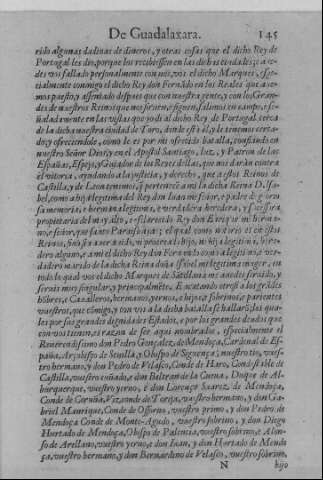 De Guadalaxara. 145
cido algunas dadinas de dineros, y otras cosas que el dicho Rey de
Portugal les dio, porque los recibiessen en las dichas ciudades; a
des vos fallado personalmente con nos, vos el dicho Marques, espe-
cialmente conmigo el dicho Rey don Fernãdo en los Reales que a ne-
mos puesto, y assentado despues que con nuestra gente, y con los Gran-
des de nuestros Reinos que nos siruen, e siguen, salimos en campo, e se-
ñaladamente en las vistas que yo di al dicho Rey de Portugal, cerca
de la dicha nuestra ciudad de Toro, donde està el, y le tenemos cerca-
do, y ofreciendole, como le es por mi ofrecida batalla, confiando en
nuestro Señor Dios, y en el Apostol Santiago, luz, y Patron de las
Españas, Espejo, e Guiador de los Reyes dellas, que nos daràn contra
el vitoria, ayudando a la justicia, y derecho, que a estos Reinos de
Castilla, y de Leon tenemos, è pertenece a mi la dicha Reina D. Isa-
bel, como a hija legitima del Rey don Iuan mi señor, e padre de glorio
sa memoria, e hermana legitima, e verdadera heredera, y sucessora
propietaria del muy alto, e esclarecido Rey don Enrique mi herma-
no, e señor, que santo Paraiso aya; el qual como notorio es en estos
Reinos, finò sin auer auido, ni procreado hijo, ni hija legitima, here-
dero alguno, e a mi el dicho Rey don Fernando como a legitimo ver-
dadero marido de la dicha Reina doña Isabel mi legitima muger, en
todo lo qual vos el dicho Marques de Santillana me auedes seruido, y
seruis muy singular, y principalmẽte. E acatando otrosi a los grãdes
hõbres, e Caualleros, hermanos, yernos, e hijos, e sobrinos, e parientes
vuestros, que cõmigo, e con vos a la dicha batalla se hallarõ; los qua-
les por sus grandes dignidades e Estados, e por los grandes deudos que
con vos tienen, es razon de ser aqui nombrados, especialmente el
Reuerendissimo don Pedro Gonçalez, de Mendoça, Cardenal de Es-
paña, Arçobispo de Seuilla, y Obispo de Siguença, nuestro tio, vues-
tro hermano, y don Pedro de Velasco, Conde de Haro, Condestable de
Castilla, vuestro cuñado, e don Beltran de la Cueua, Duque de Al-
burquerque, vuestro yerno, è don Lorenço Suarez de Mendoça,
Conde de Coruña, Vizconde de Torija, vuestro hermano, y don Ga-
briel Manrique, Conde de Ossorno, vuestro primo, y don Pedro de
Mendoça Conde de Monte-Agudo, vuestro sobrino, y don Diego
Hurtado de Mendoça, Obispo de Palencia, vuestro sobrino, e Alon-
so de Arellano, vuestro yerno, e don Iuan, y don Hurtado de Mendo
ça, vuestro hermano, y don Bernardino de Velasco, vuestro sobrino,
N hijo